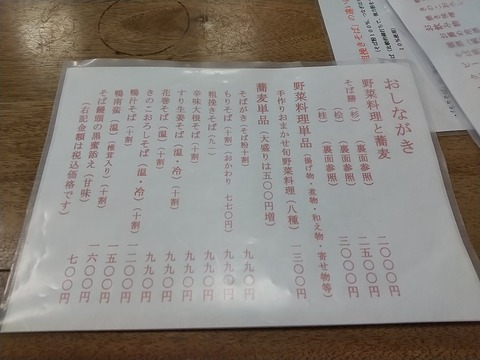 おしながき
野菜料理と蕎麦
そば勝（杉）（裏面参照） 二〇〇〇円
（松）（裏面参照） 二五〇〇円
（桂）（裏面参照） 三〇〇〇円
野菜料理単品（揚げ物・煮物・和え物・寄せ物等）
手作りおまかせ旬野菜料理（八種） 一三〇〇円
蕎麦単品（大盛りは五〇〇円増）
そばがき（そば粉十割） 九九〇円
もりそば（十割）（おかわり 七七〇円） 九九〇円
粗挽きそば（九一） 九九〇円
辛味大根そば（十割） 九九〇円
すり生姜そば（温・冷）（十割） 九九〇円
花巻そば（温）（十割） 九九〇円
きのこおろしそば（温・冷）（十割） 一二〇〇円
鴨汁そば（十割） 一五〇〇円
鴨南蛮（温）（椎茸入り）（十割） 一六〇〇円
そば饅頭の黒蜜添え（甘味） 七〇〇円
（右記金額は税込価格です）
粗挽きそば」の違い